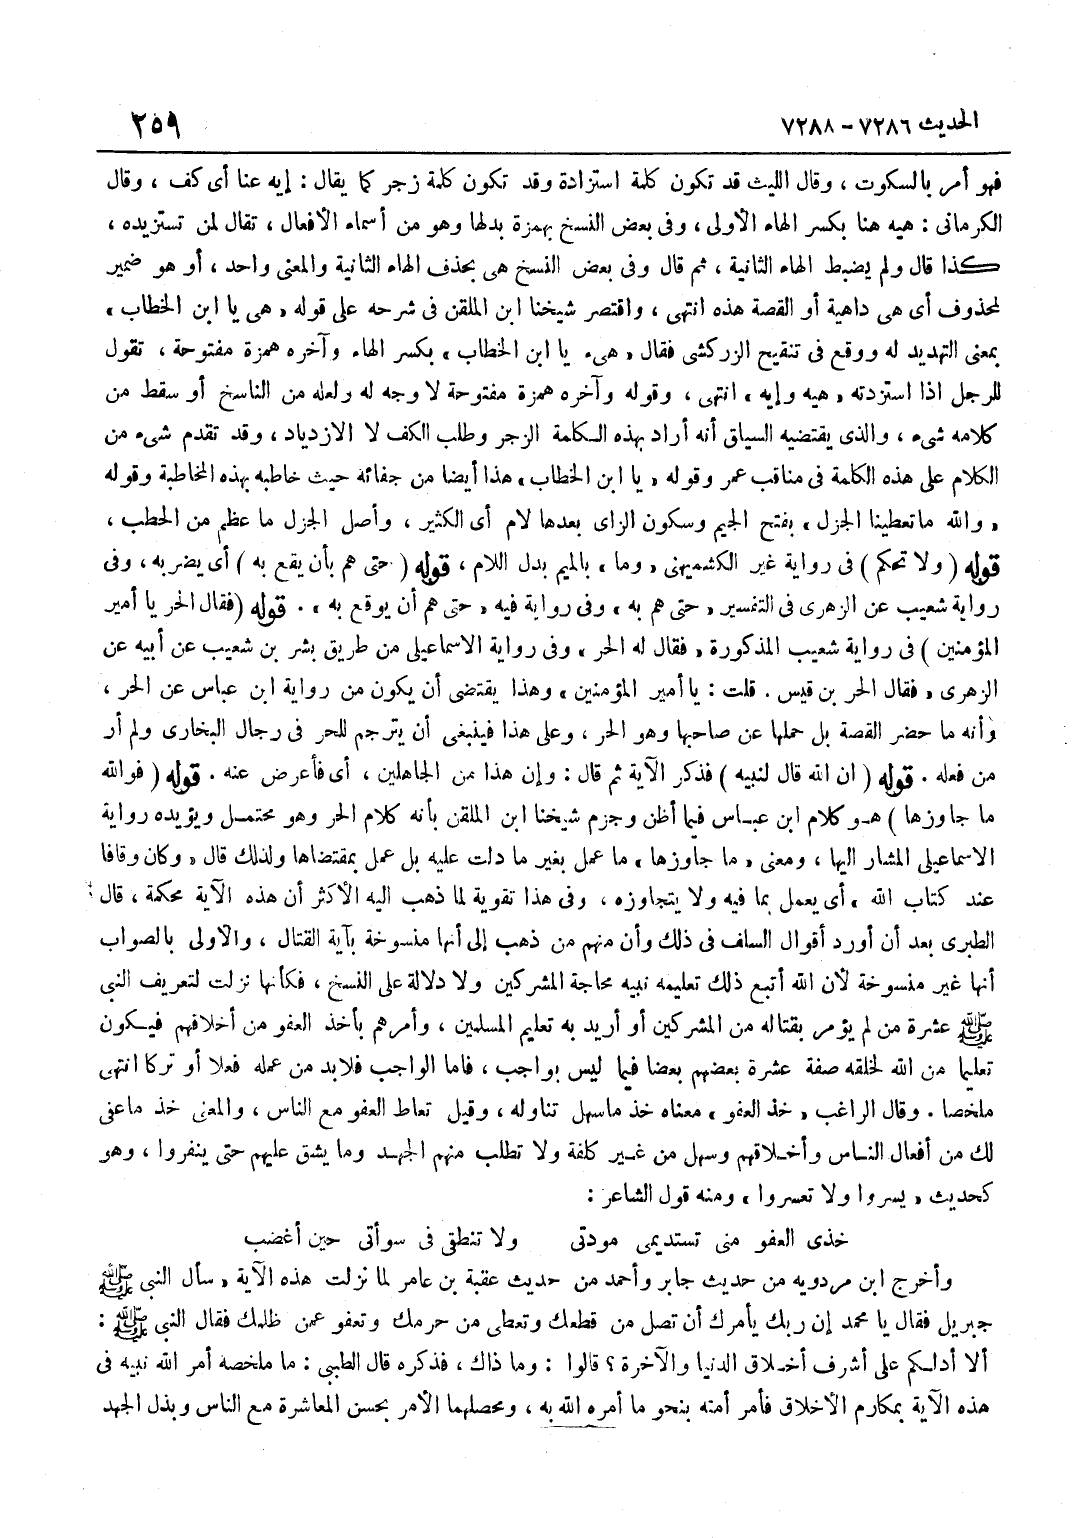 الحديث ٧٢٨٦ - ٧٢٨٨
٢٥٩
فهو أمر بالسكوت ، وقال الليث قد تكون كلمة استزادة وقد تكون كلمة زجر كما يقال : إيه عنا أى كف ، وقال
الكرمانى : هيه هنا بكسر الهاء الأولى ، وفى بعض النسخ بهمزة بدلها وهو من أسماء الأفعال ، تقال لمن تستزيده ،
كذا قال ولم يضبط الهاء الثانية ، ثم قال وفى بعض النسخ هى بحذف الهاء الثانية والمعنى واحد ، أو هو ضمير
لمحذوف أى هى داهية أو القصة هذه انتهى ، واقتصر شيخنا ابن الملقن فى شرحه على قوله « هى يا ابن الخطاب »
بمعنى التهديد له ووقع فى تنقيح الزركشى فقال « هىء يا ابن الخطاب » بكسر الهاء وآخره همزة مفتوحة ، تقول
للرجل اذا استزدته « هيه وإيه » انتهى ، وقوله وآخره همزة مفتوحة لا وجه له ولعله من الناسخ أو سقط من
كلامه شىء ، والذى يقتضيه السياق أنه أراد بهذه الكلمة الزجر وطلب الكف لا الازدياد ، وقد تقدم شىء من
الكلام على هذه الكلمة فى مناقب عمر وقوله « يا ابن الخطاب » هذا أيضا من جفائه حيث خاطبه بهذه المخاطبة وقوله
« والله ما تعطينا الجزل » بفتح الجيم وسكون الزاى بعدها لام أى الكثير ، وأصل الجزل ما عظم من الحطب ،
قوله ( ولا تحكم ) فى رواية غير الكشميهنى « وما » بالميم بدل اللام ، قوله ( حتى هم بأن يقع به ) أى يضربه ، وفى
رواية شعيب عن الزهرى فى التفسير « حتى هم به » وفى رواية فيه « حتى هم أن يوقع به » . قوله ( فقال الحر يا أمير
المؤمنين ) فى رواية شعيب المذكورة « فقال له الحر » وفى رواية الاسماعيلى من طريق بشر بن شعيب عن أبيه عن
الزهرى « فقال الحر بن قيس . قلت : يا أمير المؤمنين » وهذا يقتضى أن يكون من رواية ابن عباس عن الحر ،
وأنه ما حضر القصة بل حملها عن صاحبها وهو الحر ، وعلى هذا فينبغى أن يترجم للحر فى رجال البخارى ولم أر
من فعله . قوله ( ان الله قال لنبيه ) فذكر الآية ثم قال : وإن هذا من الجاهلين ، أى فأعرض عنه . قوله ( فوالله
ما جاوزها ) هو كلام ابن عباس فيما أظن وجزم شيخنا ابن الملقن بأنه كلام الحر وهو محتمل ويؤيده رواية
الاسماعيلى المشار اليها ، ومعنى « ما جاوزها » ما عمل بغير ما دلت عليه بل عمل بمقتضاها ولذلك قال « وكان وقافا
عند كتاب الله » أى يعمل بما فيه ولا يتجاوزه ، وفى هذا تقوية لما ذهب اليه الأكثر أن هذه الآية محكمة ، قال
الطبرى بعد أن أورد أقوال السلف فى ذلك وأن منهم من ذهب إلى أنها منسوخة بآية القتال ، والأولى بالصواب
أنها غير منسوخة لأن الله أتبع ذلك تعليمه نبيه محاجة المشركين ولا دلالة على النسخ ، فكأنها نزلت لتعريف النبى
ﷺ عشرة من لم يؤمر بقتاله من المشركين أو أريد به تعليم المسلمين ، وأمرهم بأخذ العفو من أخلاقهم فيكون
تعليما من الله لخلقه صفة عشرة بعضهم بعضا فيما ليس بواجب ، فاما الواجب فلابد من عمله فعلا أو تركا انتهى
ملخصا . وقال الراغب « خذ العفو » معناه خذ ما سهل تناوله ، وقيل تعاط العفو مع الناس ، والمعنى خذ ما عفى
لك من أفعال الناس وأخلاقهم وسهل من غير كلفة ولا تطلب منهم الجهد وما يشق عليهم حتى ينفروا ، وهو
كحديث « يسروا ولا تعسروا » ومنه قول الشاعر :
خذى العفو منى تستديمى مودتى ولا تنطقى فى سوأتى حين أغضب
وأخرج ابن مردويه من حديث جابر وأحمد من حديث عقبة بن عامر لما نزلت هذه الآية « سأل النبى ﷺ
جبريل فقال يا محمد إن ربك يأمرك أن تصل من قطعك وتعطى من حرمك وتعفو عمن ظلمك فقال النبى ﷺ :
ألا أدلكم على أشرف أخلاق الدنيا والآخرة ؟ قالوا : وما ذاك ، فذكره قال الطيبى : ما ملخصه أمر الله نبيه فى
هذه الآية بمكارم الأخلاق فأمر أمته بنحو ما أمره الله به ، ومحصلهما الأمر بحسن المعاشرة مع الناس وبذل الجهد